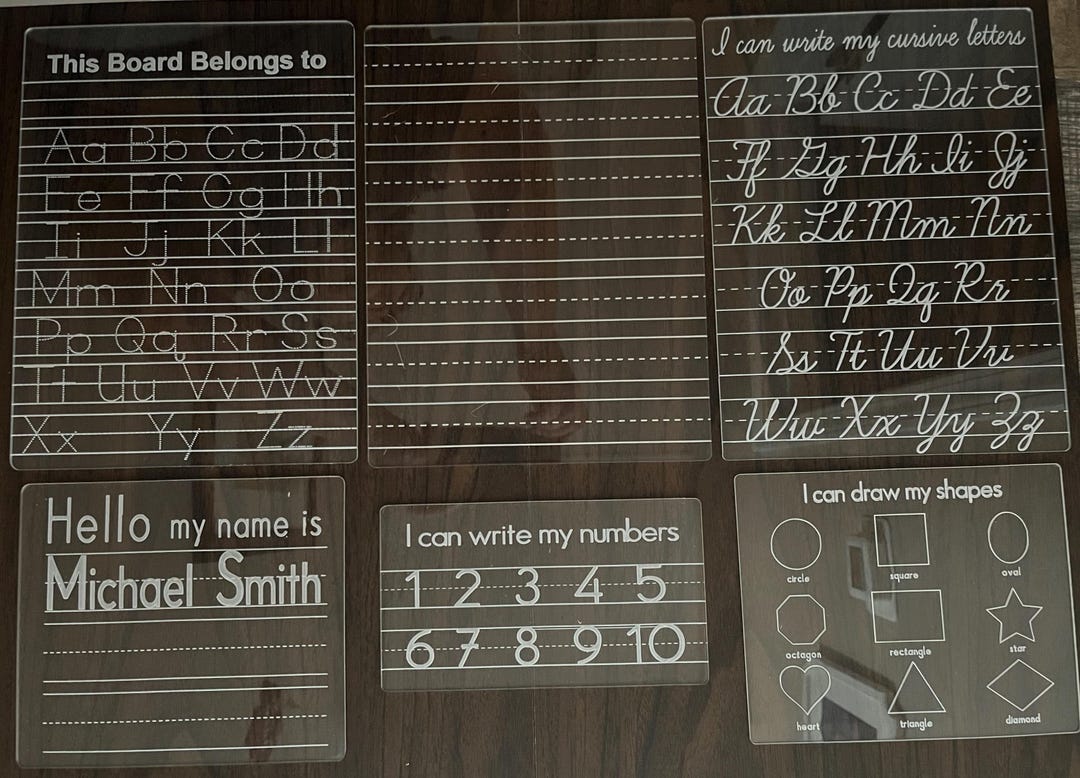 This Board Belongs to
Aa Bb Cc Dd
Ee Ff Cg Hh
Ii Jj Kk Ll
Mm Nn Oo
Pp Qq Rr Ss
Tt Uu Vv Ww
Xx Yy Zz
I can write my cursive letters
Aa Bb Cc Dd Ee
Ff Gg Hh Ii Jj
Kk Ll Mm Nn
Oo Pp Qq Rr
Ss Tt Uu Vv
Ww Xx Yy Zz
Hello my name is
Michael Smith
I can write my numbers
1 2 3 4 5
6 7 8 9 10
I can draw my shapes
circle square oval
octagon rectangle star
heart triangle diamond